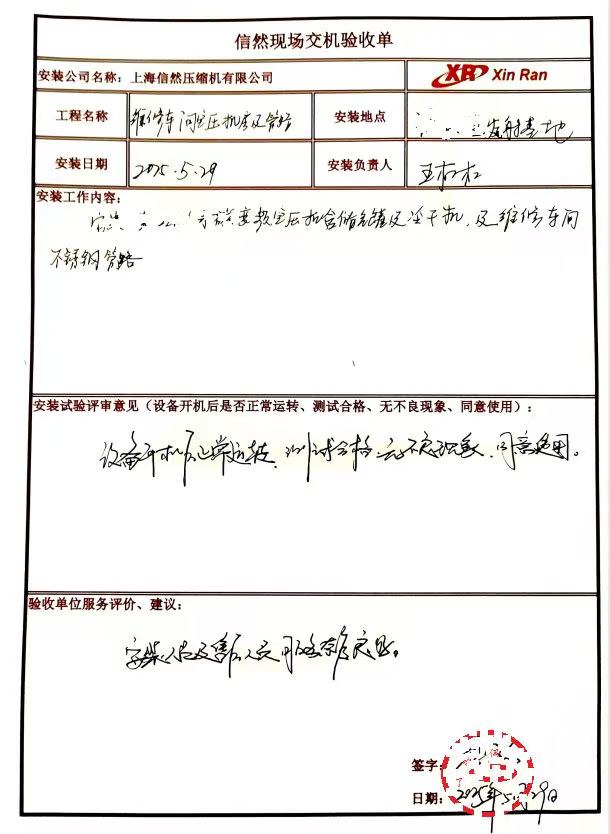 信然现场交机验收单
安装公司名称：上海信然压缩机有限公司
XR Xin Ran
工程名称 维修车间空压机房及管路
安装地点 发射基地
安装日期 2025.5.29
安装负责人 王
安装工作内容：
安装 变频空压机含储气罐及冷干机，及维修车间
不锈钢管路
安装试验评审意见（设备开机后是否正常运转、测试合格、无不良现象、同意使用）：
设备开机后正常运转，测试合格，无不良现象，同意使用。
验收单位服务评价、建议：
安装人员及售后人员服务态度良好。
签字：
日期：2025年5月29日